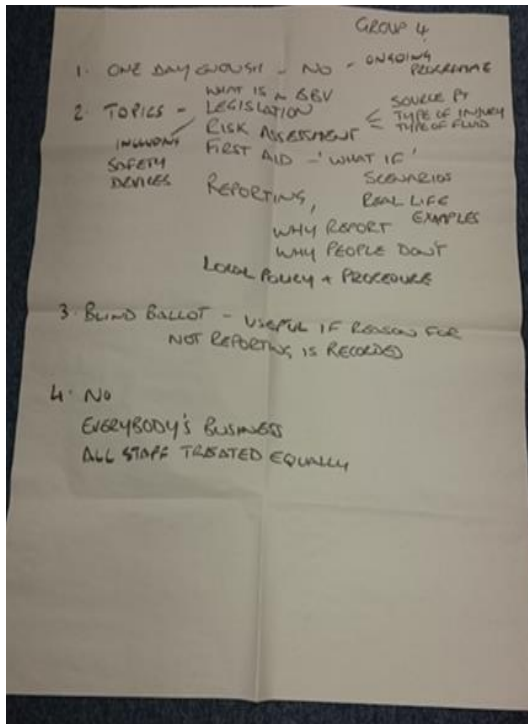 GROUP 4
1. ONE DAY ENOUGH - NO - ONGOING PROGRAMME
2. TOPICS - WHAT IS A BBV
LEGISLATION
INCLUDING SAFETY DEVICES
RISK ASSESSMENT < SOURCE PT
TYPE OF INJURY
TYPE OF FLUID
FIRST AID - 'WHAT IF' SCENARIOS
REPORTING, REAL LIFE EXAMPLES
WHY REPORT
WHY PEOPLE DON'T
LOCAL POLICY + PROCEDURE
3. BLIND BALLOT - USEFUL IF REASON FOR
NOT REPORTING IS RECORDED
4. NO
EVERYBODY'S BUSINESS
ALL STAFF TREATED EQUALLY